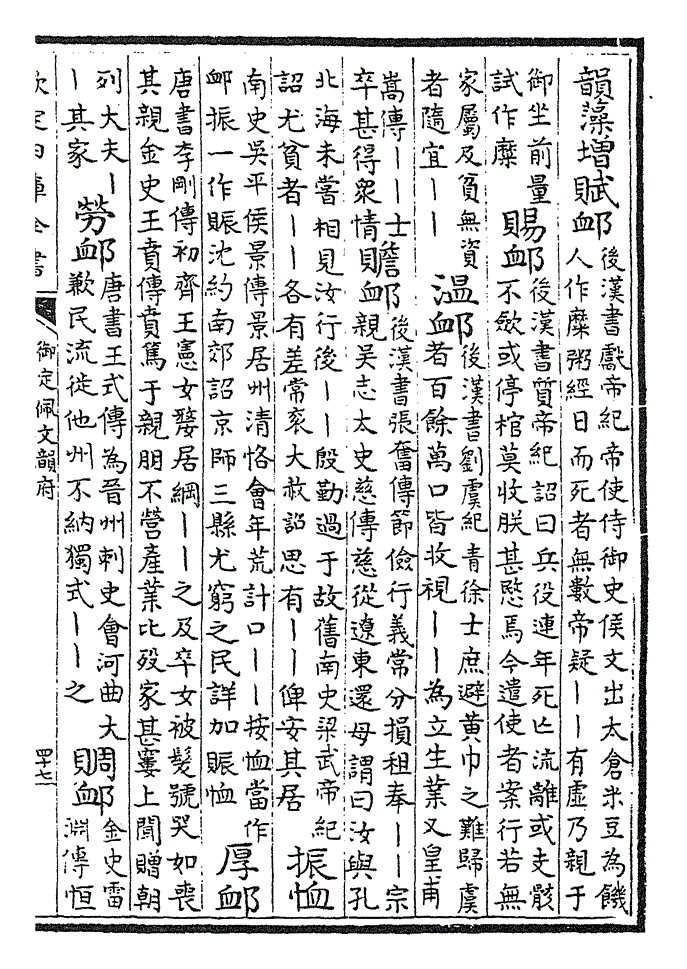 韻藻增賦䘏
後漢書獻帝紀帝使侍御史侯文出太倉米豆為饑
人作糜粥經日而死者無數帝疑丨丨有虛乃親于
御坐前量
試作糜
賜䘏
後漢書質帝紀詔曰兵役連年死亡流離或支骸
不斂或停棺莫收朕甚愍焉今遣使者案行若無
家屬及貧無資
者隨宜丨丨
温䘏
後漢書劉虞紀青徐士庶避黄巾之難歸虞
者百餘萬口皆收視丨丨為立生業又皇甫
嵩傳丨丨士
卒甚得衆情
贍䘏
後漢書張奮傳節儉行義常分損租奉丨丨宗
親吴志太史慈傳慈從遼東還母謂曰汝與孔
北海未嘗相見汝行後丨丨殷勤過于故舊南史梁武帝紀
詔尤貧者丨丨各有差常衮大赦詔思有丨丨俾安其居
振恤
南史吴平侯景傳景居州清恪會年荒計口丨丨按恤當作
䘏振一作賑沈約南郊詔京師三縣尤窮之民詳加賑恤
厚䘏
唐書李剛傳初齊王憲女嫠居綱丨丨之及卒女被髮號哭如喪
其親金史王賁傳賁篤于親朋不營產業比殁家甚窶上聞贈朝
列大夫丨
丨其家
勞䘏
唐書王式傳為晉州刺史會河曲大
歉民流徙他州不納獨式丨丨之
賙䘏
金史雷
淵傳恒
欽定四庫全書
御定佩文韻府
四十七